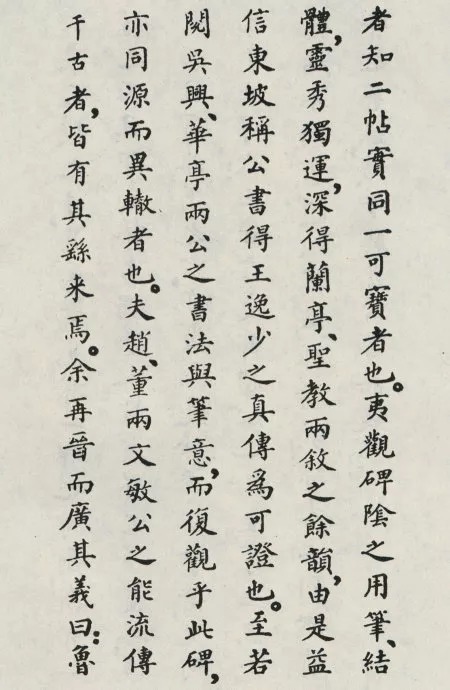 者知二帖實同一可寶者也。夷觀碑陰之用筆、結
體，靈秀獨運，深得蘭亭、聖教兩敘之餘韻，由是益
信東坡稱公書得王逸少之真傳爲可證也。至若
閱吳興、華亭兩公之書法與筆意，而復觀乎此碑，
亦同源而異轍者也。夫趙、董兩文敏公之能流傳
千古者，皆有其繇来焉。余再晉而廣其義曰：魯